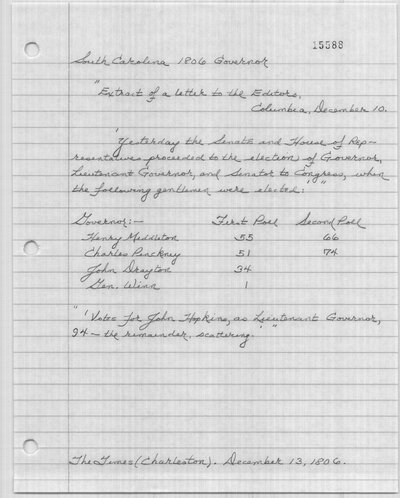 15588
South Carolina 1806 Governor
"Extract of a letter to the Editors,
Columbia, December 10.
'Yesterday the Senate and House of Rep-
resentatives proceeded to the election of Governor,
Lieutenant Governor, and Senator to Congress, when
the following gentlemen were elected:'"
Governor:- First Poll Second Poll
Henry Middleton 55 66
Charles Pinckney 51 74
John Drayton 34
Gen. Winn 1
"'Votes for John Hopkins, as Lieutenant Governor,
94 - the remainder, scattering.'"
The Times (Charleston). December 13, 1806.